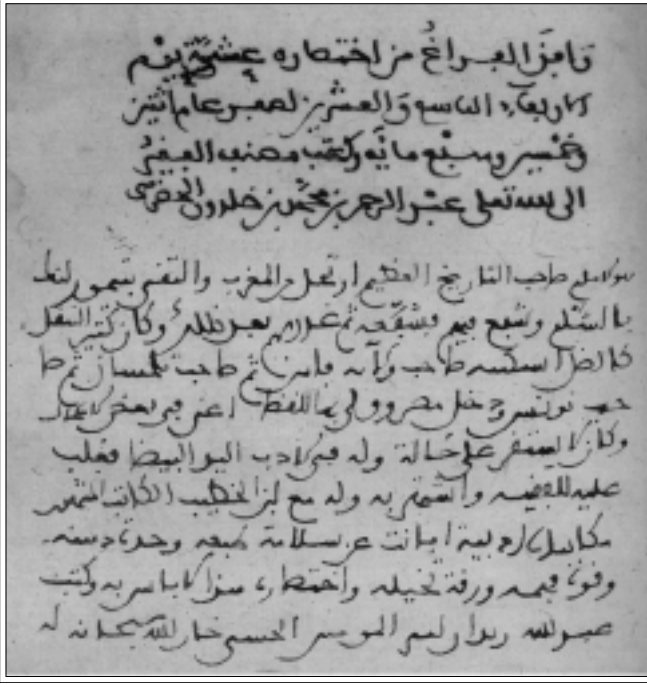 وافق الفراغ من اختصاره عشية يوم
الاربعاء التاسع والعشرين لصفر عام اثنين
وخمسين وسبع مائة وكتب مصنفه الفقير
الى الله تعلى عبد الرحمن بن محمد بن خلدون الحضرمي
صاحب التاريخ العظيم ارتحل من المغرب والتقى بتيمور لنك
بالشام وشفع فيهم فشفعه ثم غدر بهم بعد ذلك وكان كثير التنقل
صاحب فاس ثم صاحب تلمسان ثم صا
حب تونس ودخل مصر وولي بها القضا اعني في بعض
وكان لا يستقر على حالة وله في الادب اليد البيضا فغلب
عليه واشتهر به وله مع ابن الخطيب الكاتب الشهير
مكاتبات ادبية ابانت عن سلامة طبعه وحدة ذهنه
وقوة فهمه ورقة تخيله واختصاره هذا لا باس به وكتب
عبد الله الحسني خار الله سبحانه له